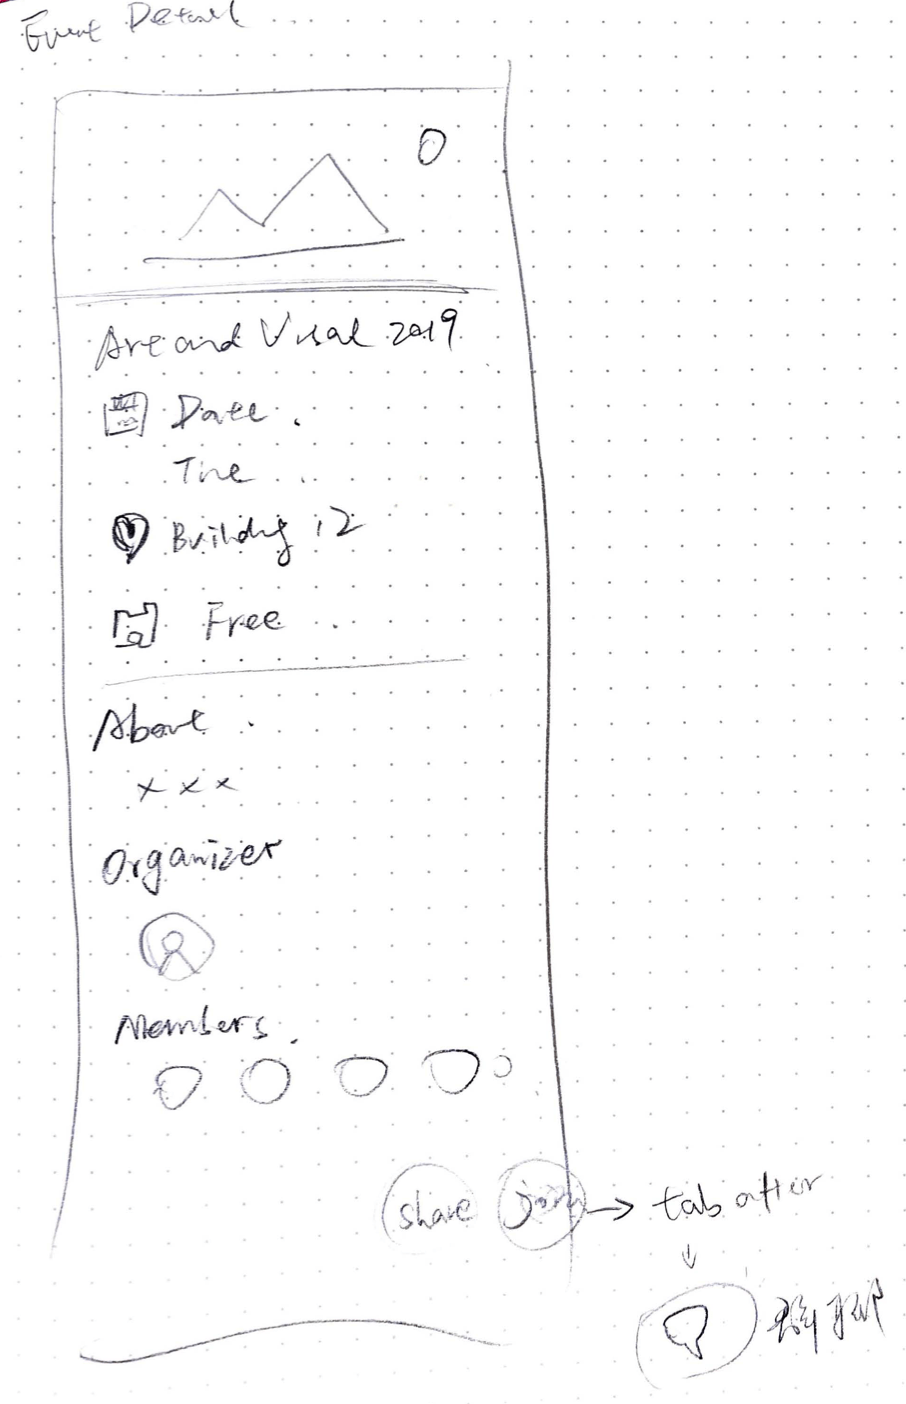 Event Detail
Art and Visal 2019
Date
Time
Building 12
Free
About
x x x
Organizer
Members
share
join
tab after